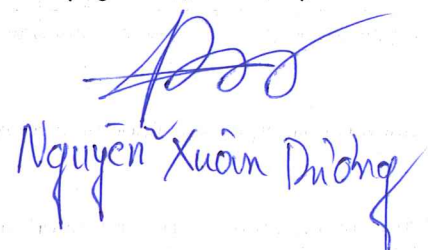 Nguyễn Xuân Dương